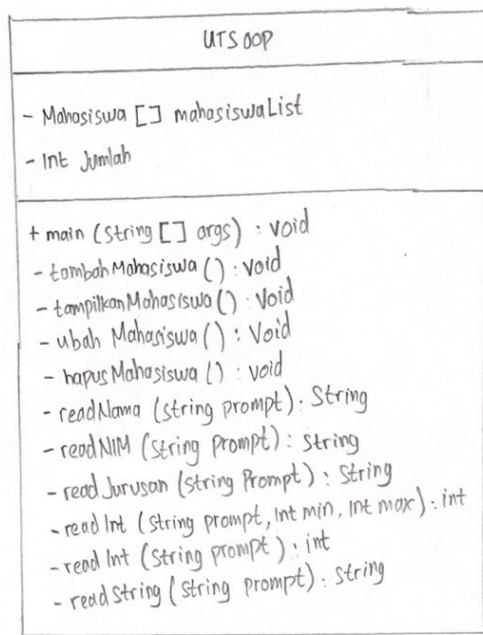 UTS OOP
- Mahasiswa [] mahasiswaList
- Int Jumlah
+ main (String [] args) : void
- tambahMahasiswa () : void
- tampilkanMahasiswa () : Void
- ubah Mahasiswa () : Void
- hapusMahasiswa () : void
- readNama (string prompt) : String
- readNIM (string prompt) : string
- read Jurusan (string Prompt) : String
- read Int (string prompt, Int min, Int max) : int
- read Int (string prompt) : int
- read String (string prompt) : string